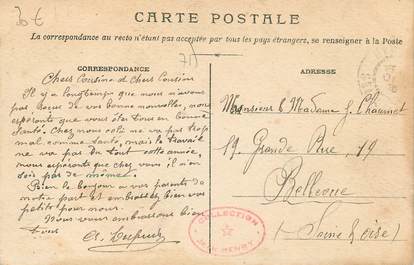 30€
CARTE POSTALE
La correspondance au recto n'étant pas acceptée par tous les pays étrangers, se renseigner à la Poste
71
CORRESPONDANCE
ADRESSE
Chers Cousine et chers Cousins
Il y a longtemps que nous n'avons
pas Recus de vos bonne nouvelles, nous
esperont que vous ete tous en bonne
Santé. Chez nous cela ne va pas trop
mal comme Santé, mais le travail
ne va pas du tout cette année,
nous esperont que chez vous il n'en
dois pas de même.
Bien le bonjour a vos parents de
notre part et embrassez bien vos
petits pour nous.
Nous vous embrassons bien
tous
Monsieur & Madame J. Chaumet
19. Grande Rue. 19
Bellevue
(Seine & Oise)
COLLECTION
JEAN HENRY